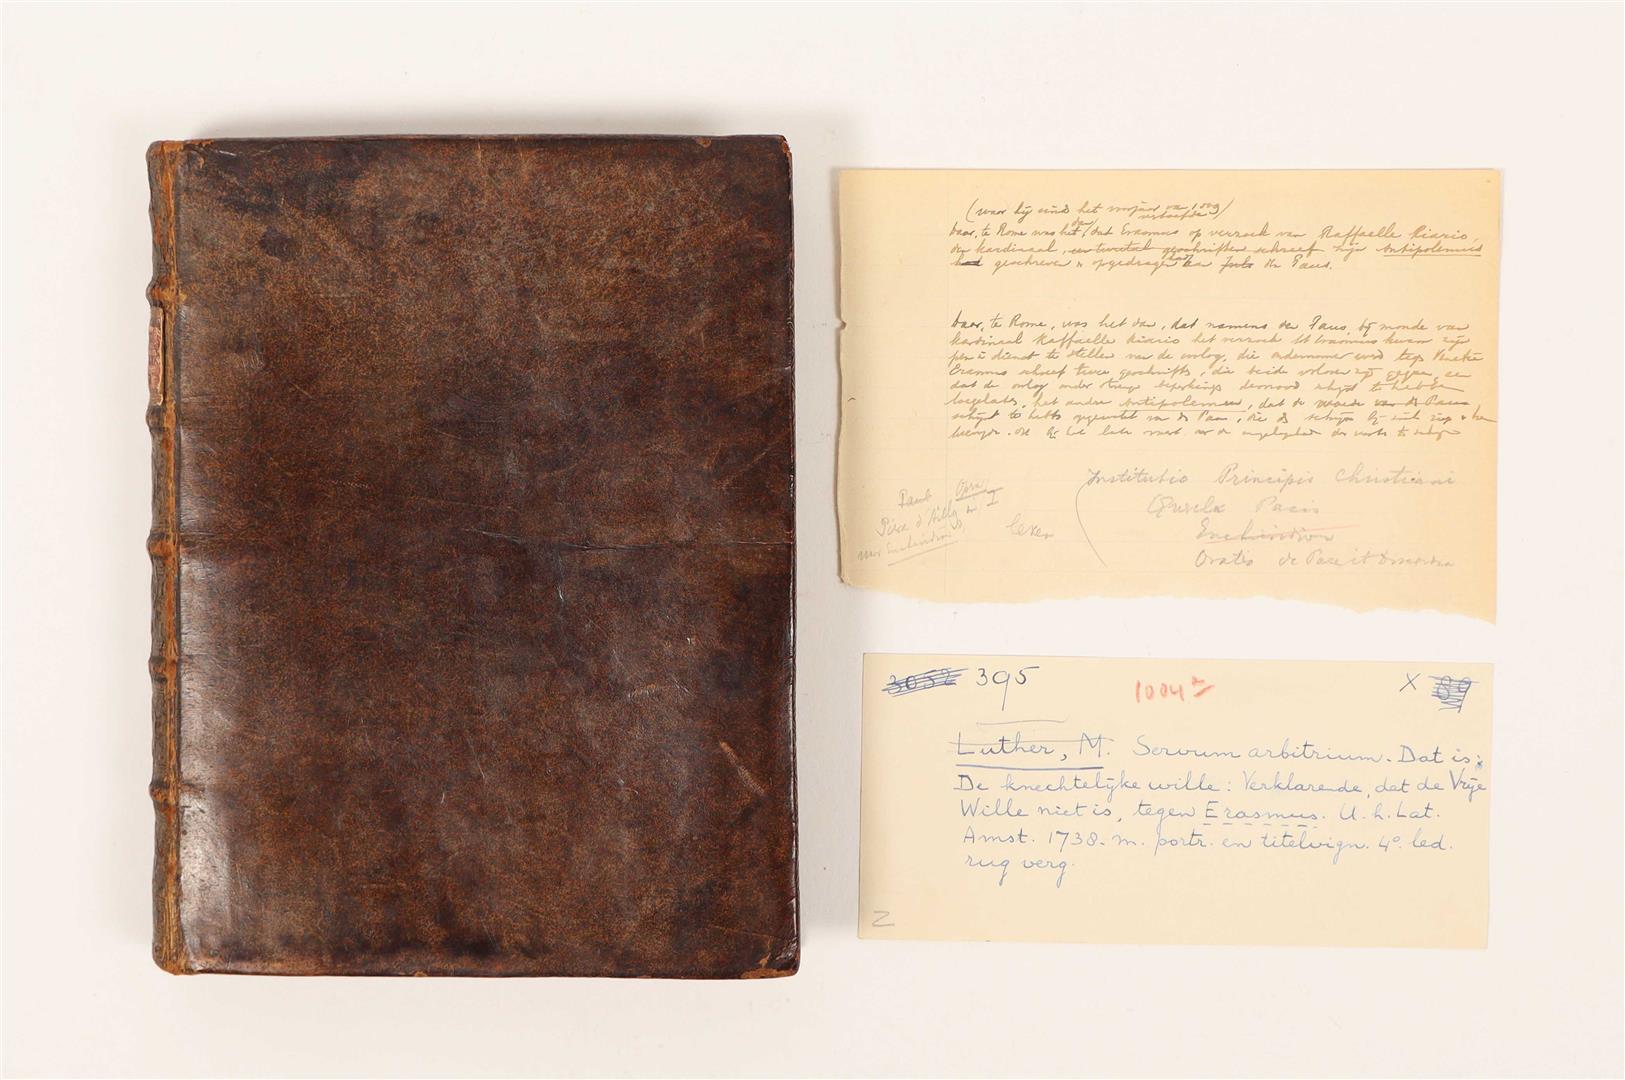 (waar hij sinds het voorjaar van 1009
vertoefde)
daar, te Rome was het dan, dat Erasmus op verzoek van Raffaelle Riario,
den kardinaal, een tweetal geschriften schreef zijn Antipolemus
had geschreven & opgedragen aan den Paus.
Daar, te Rome, was het dan, dat namens den Paus, bij monde van
kardinaal Raffaelle Riario het verzoek tot Erasmus kwam zijn
pen in dienst te stellen van de oorlog, die ondernomen werd tegen Venetië
Erasmus schreef twee geschriften, die beide verloren zijn gegaan, een
dat de oorlog onder
toegelaten, het andre Antipolemus, dat de woede van de Paus
schijnt te hebben opgewekt van de Paus, die
Institutio Principis Christiani
Querela Pacis
Enchiridion
Oratio de Pace et Discordia
Paul Opra
Père d'Ailly in I
voor Enchiridion
lezen
3052 395 1004 X 89
Luther, M. Servum arbitrium. Dat is:
De knechtelijke wille: Verklarende, dat de Vrije
Wille niet is, tegen Erasmus. U. h. Lat.
Amst. 1738. m. portr. en titelvign. 4°. led.
rug verg.
Z